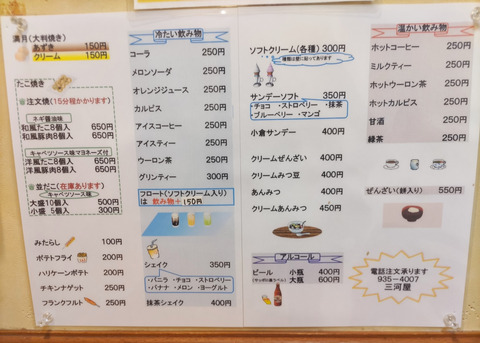 満月(大判焼き)
あずき 150円
クリーム 150円
たこ焼き
注文焼(15分程かかります)
ネギ醤油味
和風たこ8個入 650円
和風豚肉8個入 650円
キャベツソース味マヨネーズ付
洋風たこ8個入 650円
洋風豚肉8個入 650円
並だこ(在庫あります)
キャベツソース味
大盛10個入 500円
小盛 5個入 300円
みたらし 100円
ポテトフライ 200円
ハリケーンポテト 200円
チキンナゲット 250円
フランクフルト 250円
冷たい飲み物
コーラ 250円
メロンソーダ 250円
オレンジジュース 250円
カルピス 250円
アイスコーヒー 250円
アイスティー 250円
ウーロン茶 250円
グリンティー 300円
フロート(ソフトクリーム入り)
は 飲み物+150円
シェイク 350円
・バニラ ・チョコ ・ストロベリー
・バナナ ・メロン ・ヨーグルト
抹茶シェイク 400円
ソフトクリーム(各種) 300円
種類は壁に貼ってあります
サンデーソフト 350円
・チョコ ・ストロベリー ・抹茶
・ブルーベリー ・マンゴ
小倉サンデー 400円
クリームぜんざい 400円
クリームみつ豆 400円
あんみつ 400円
クリームあんみつ 450円
アルコール
ビール 小瓶 400円
大瓶 600円
温かい飲み物
ホットコーヒー 250円
ミルクティー 250円
ホットウーロン茶 250円
ホットカルピス 250円
甘酒 250円
昆布茶 250円
ぜんざい(餅入り) 550円
電話注文承ります
935-4007
三河屋